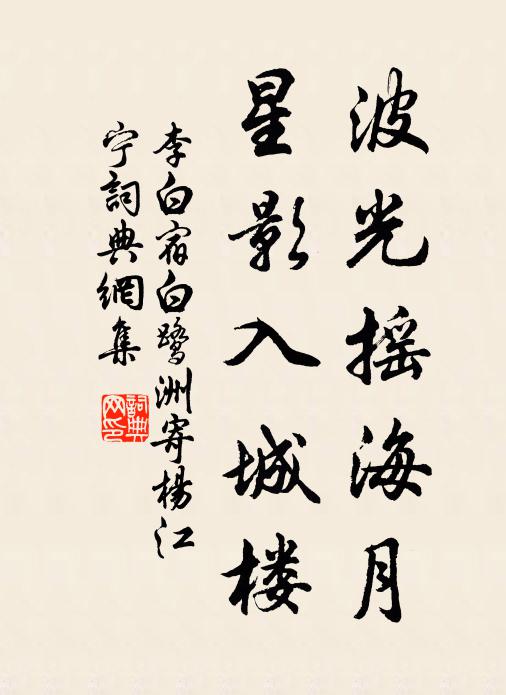 波光摇海月
星影入城楼
李白宿白鹭洲寄杨江
宁詞典網集
詞典网印